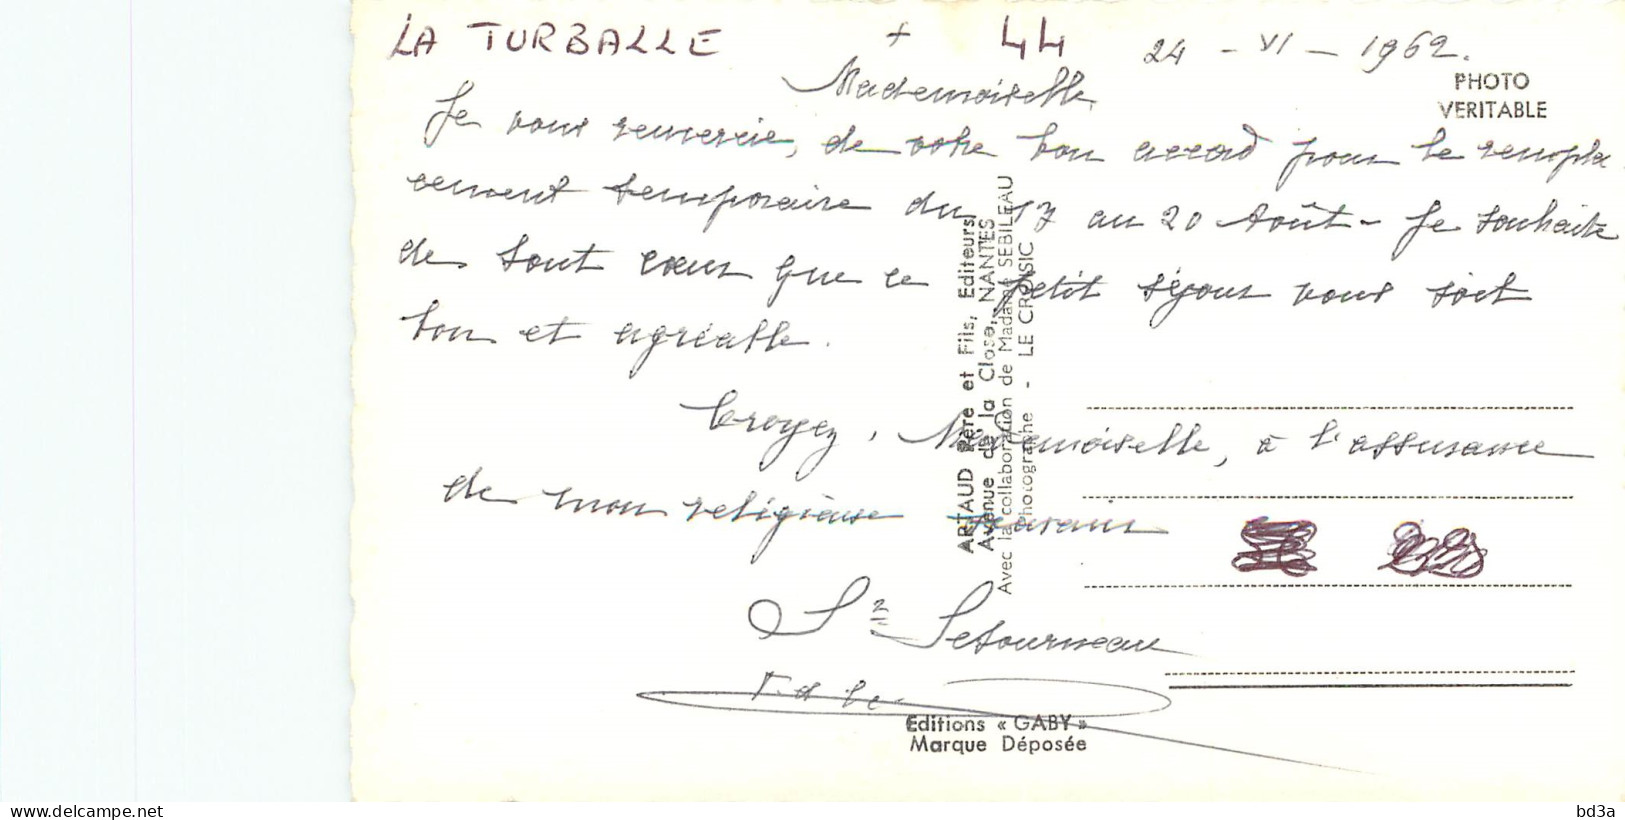 LA TURBALLE + 44 24 - VI - 1962.
PHOTO
VERITABLE
Mademoiselle,
Je vous remercie, de votre bon accord pour le rempla
cement temporaire du 17 au 20 Août - Je souhaite
de tout cœur que ce petit séjour vous soit
bon et agréable.
Croyez, Mademoiselle, à l'assurance
de mon religieuse
Letourneau
ARTAUD Père et Fils, Editeurs
Avenue de la Close, NANTES
Avec la collaboration de Madame SEBILEAU
Photographe - LE CROISIC
Editions « GABY »
Marque Déposée
bd3a